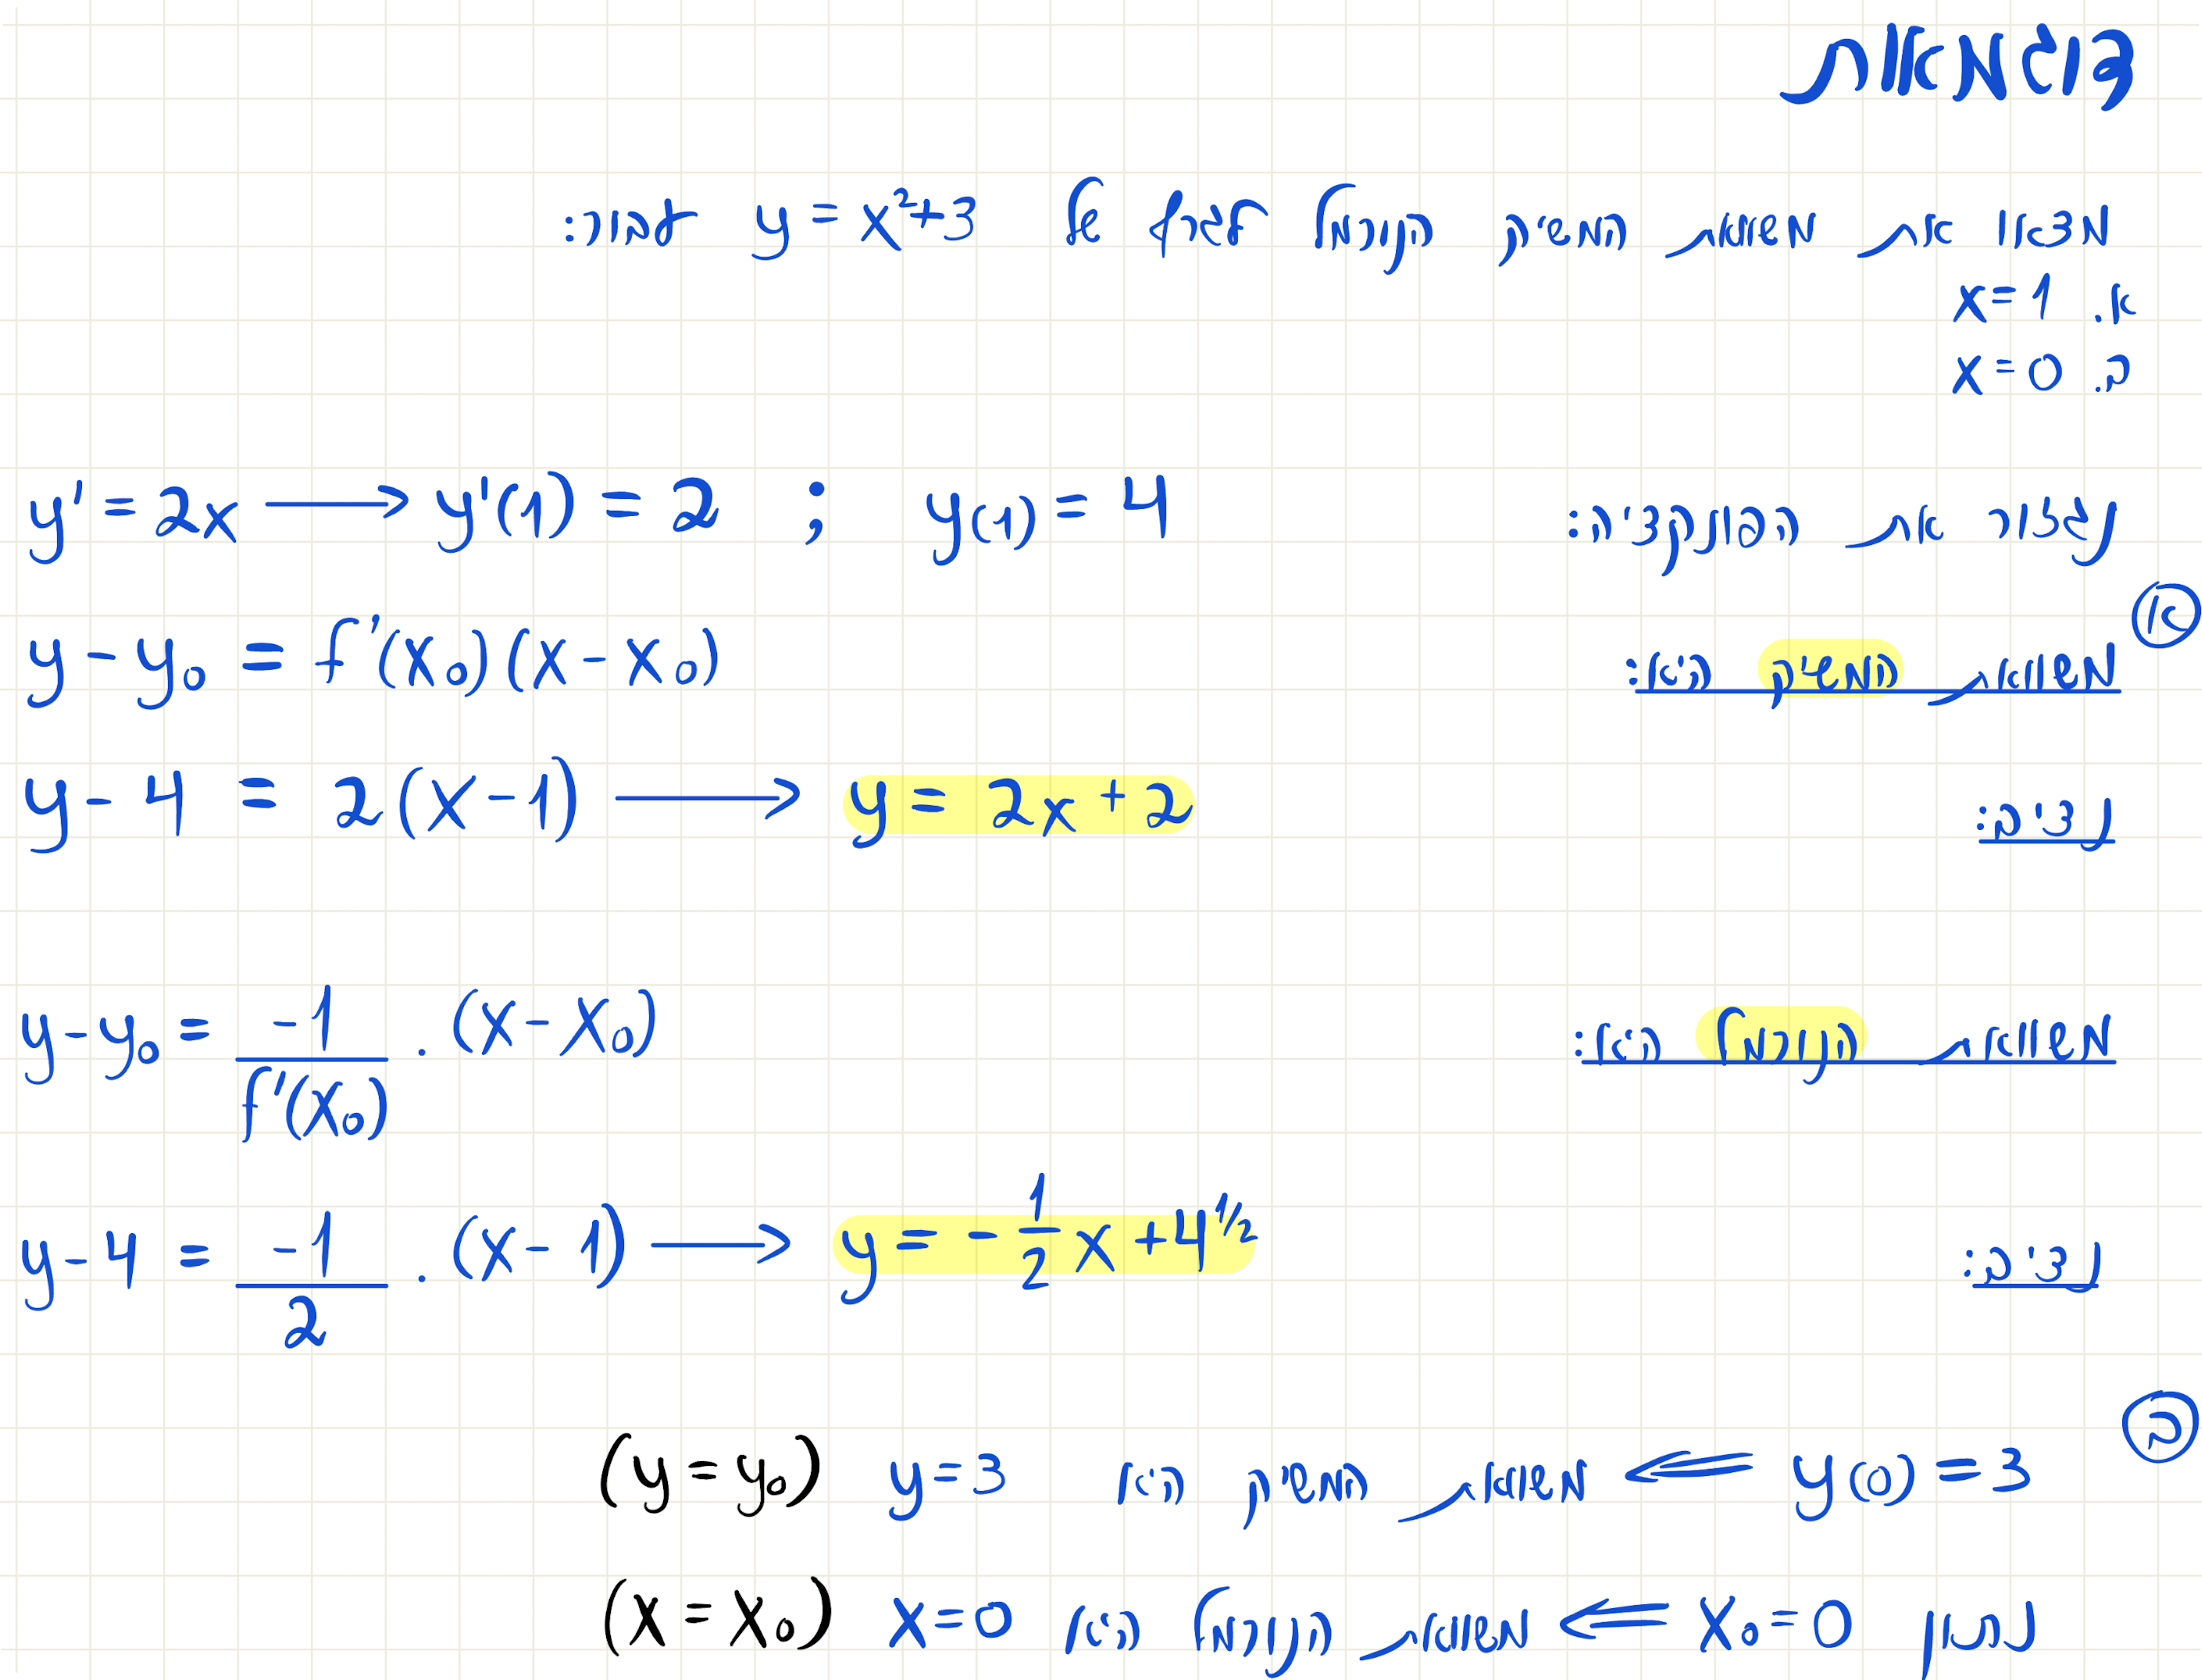 דוגמאות
מצאו את משוואת המשיק והנורמל לגרף של y = x²+3 עבור:
א. x=1
ב. x=0
נגזור את הפונקציה: y' = 2x ⟶ y'(1) = 2 ; y(1) = 4
א
משוואת המשיק היא: y - y₀ = f'(x₀)(x - x₀)
נציב: y - 4 = 2(x - 1) ⟶ y = 2x + 2
משוואת הנורמל היא: y - y₀ = -1/f'(x₀) · (x - x₀)
נציב: y - 4 = -1/2 · (x - 1) ⟶ y = -1/2 x + 4 1/2
ב
y(0) = 3 ⟸ משוואת המשיק היא y=3 (y = y₀)
x₀ = 0 ⟸ משוואת הנורמל היא x=0 (x = x₀)